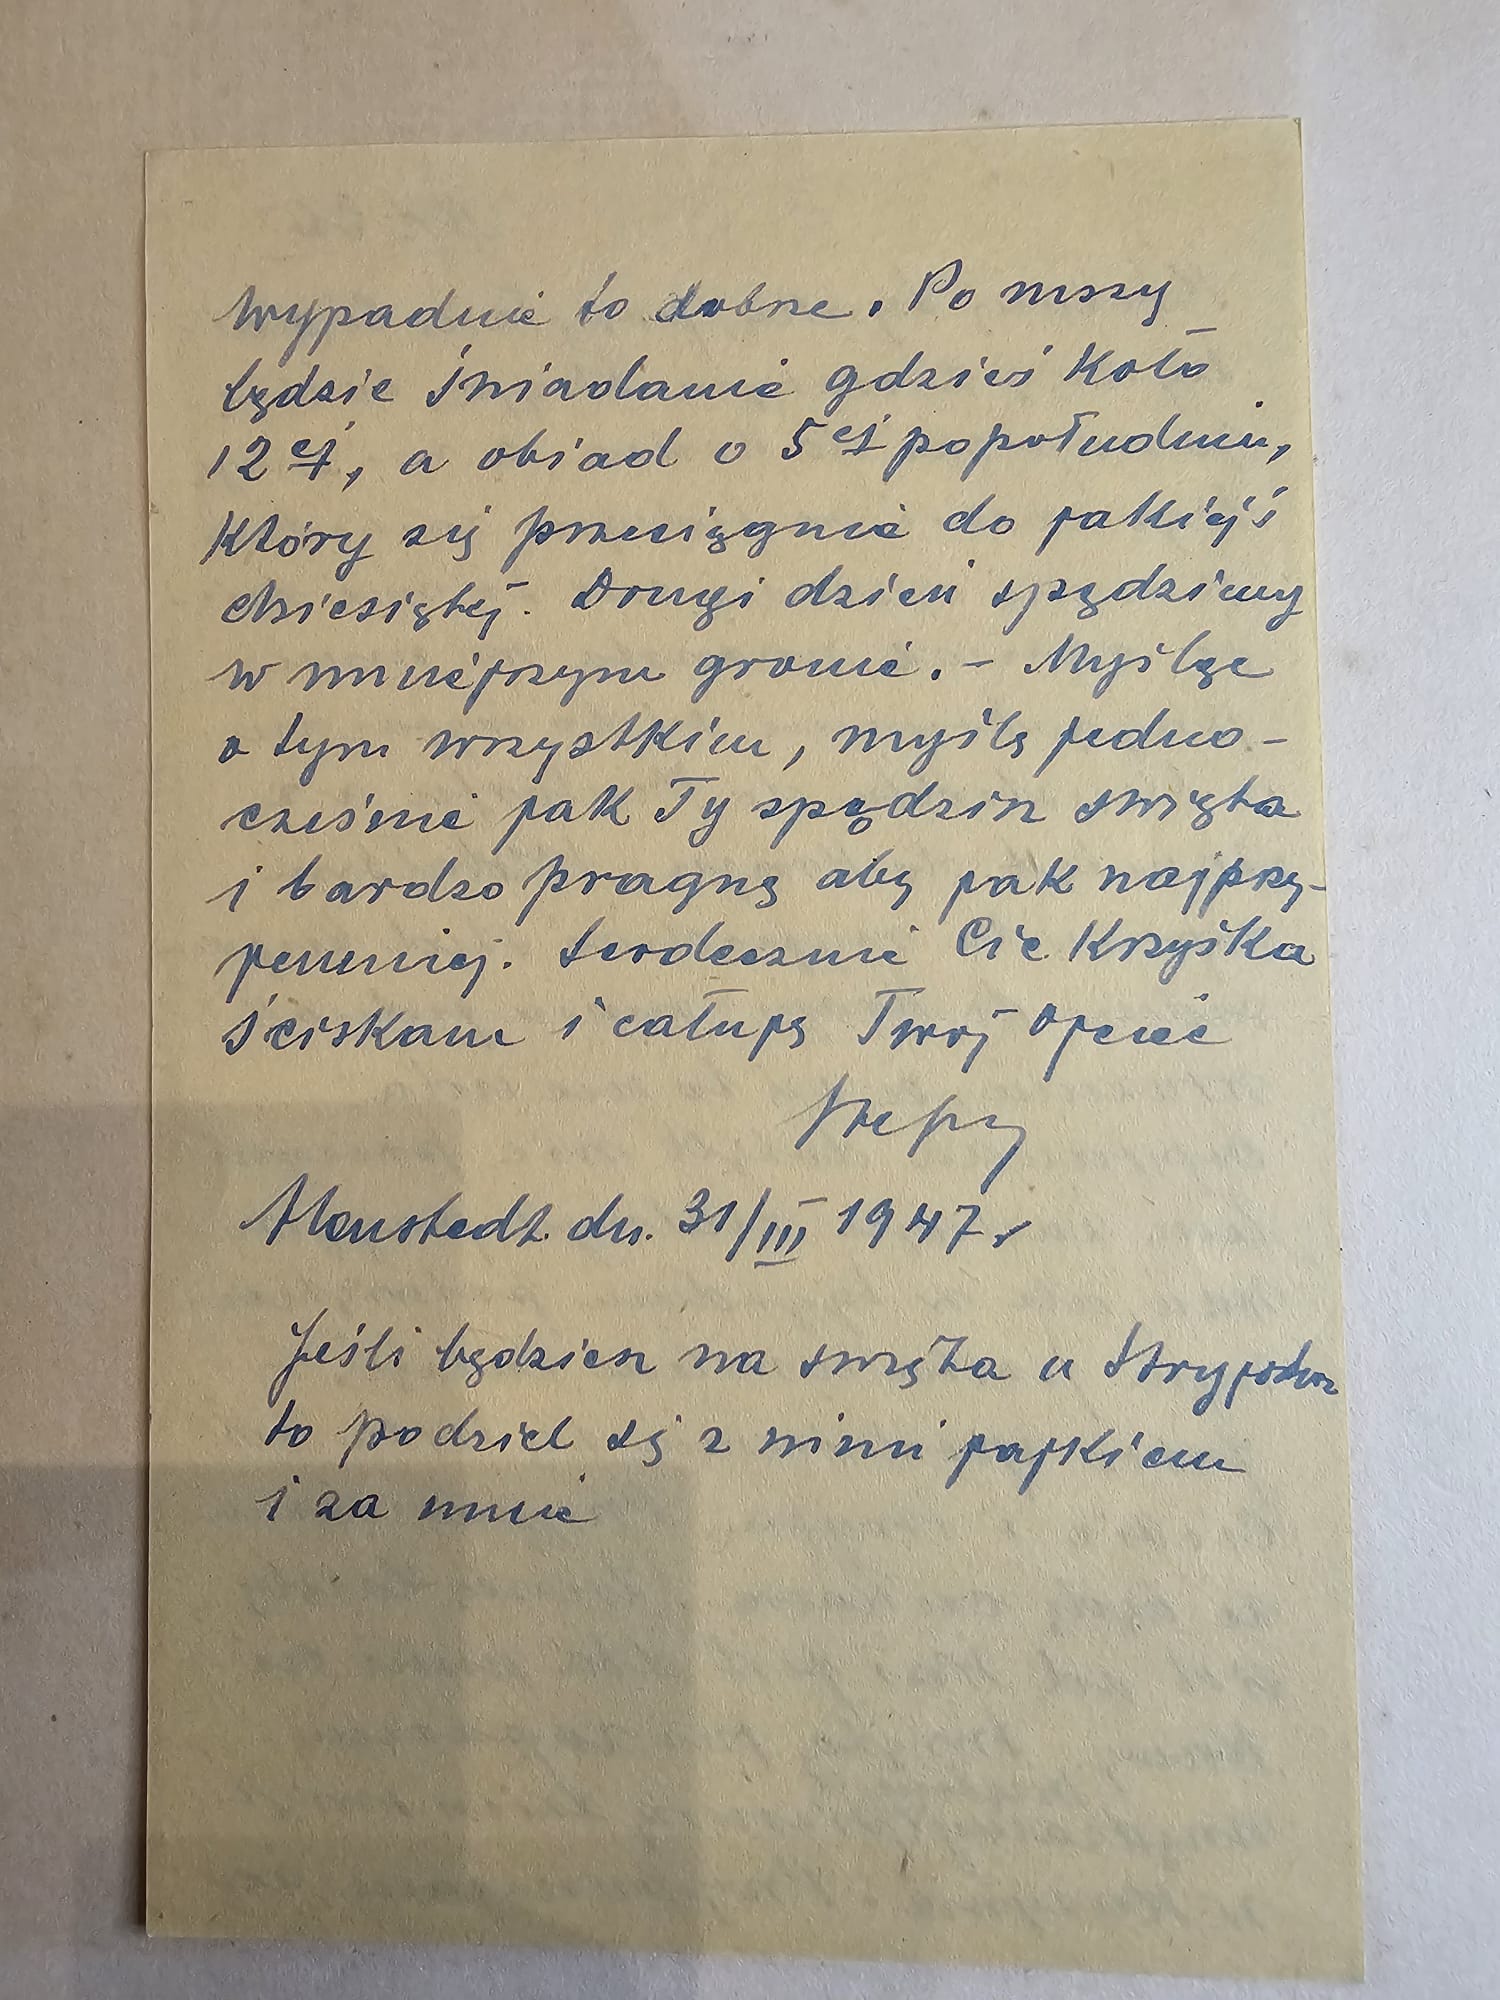 wypadnie to dobrze. Po mszy
będzie śniadanie gdzieś koło
12ej, a obiad o 5ej popołudniu,
który się przeciągnie do jakiejś
dziesiątej. Drugi dzień spędzimy
w mniejszym gronie. – Myśląc
o tym wszystkim, myślę jedno-
cześnie jak Ty spędzisz święta
i bardzo pragnę aby jak najprzy-
jemniej. Serdecznie Cię Krzyśka
ściskam i całuję Twój Ojciec
dn. 31/III 1947r
Jeśli będziesz na święta u
to podziel się z nimi jajkiem
i za mnie